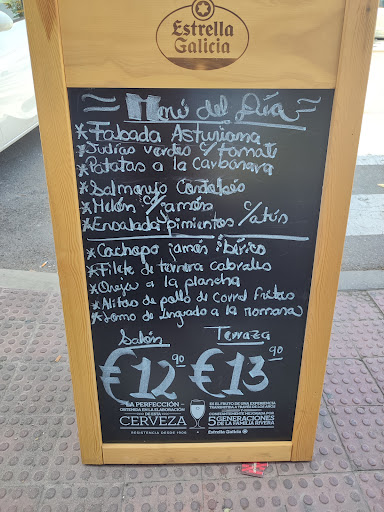 Estrella
Galicia
Menú del Día
* Fabada Asturiana
* Judías verdes c/tomate
* Patatas a la Carbonara
* Salmorejo Cordobés
* Melón c/jamón
* Ensalada pimientos c/atún
* Cachopo jamón ibérico
* Filete de ternera cabrales
* Oreja a la plancha
* Alitas de pollo de corral fritas
* Lomo de lenguado a la romana
Salón Terraza
€12,90 €13,90
LA PERFECCIÓN
OBTENIDA EN LA ELABORACIÓN
DE ESTA
CERVEZA
RESISTENCIA DESDE 1906
ES EL FRUTO DE UNA EXPERIENCIA
TRANSMITIDA A TRAVÉS DE VARIOS
CONSTANTEMENTE DE FORMA POR
5 GENERACIONES
DE LA FAMILIA RIVERA
Estrella Galicia